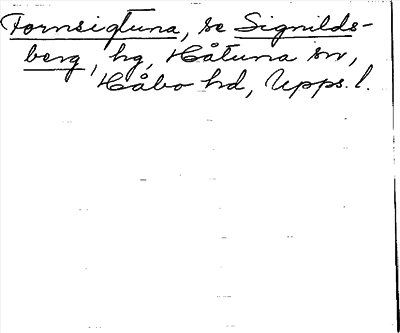 Fornsigtuna, se Signilds-
berg, hg, Håtuna sn,
Håbo hd, Upps. l.